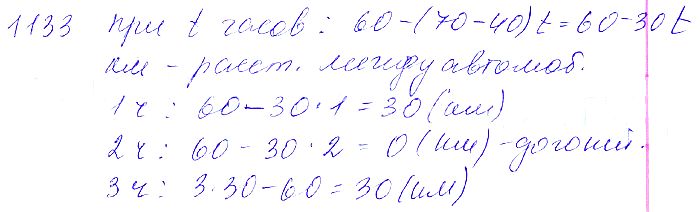 1133 при t часов: 60-(70-40)t=60-30t
км - расст. между автомоб.
1ч: 60-30·1=30(км)
2ч: 60-30·2=0(км)-догонит.
3ч: 3·30-60=30(км)